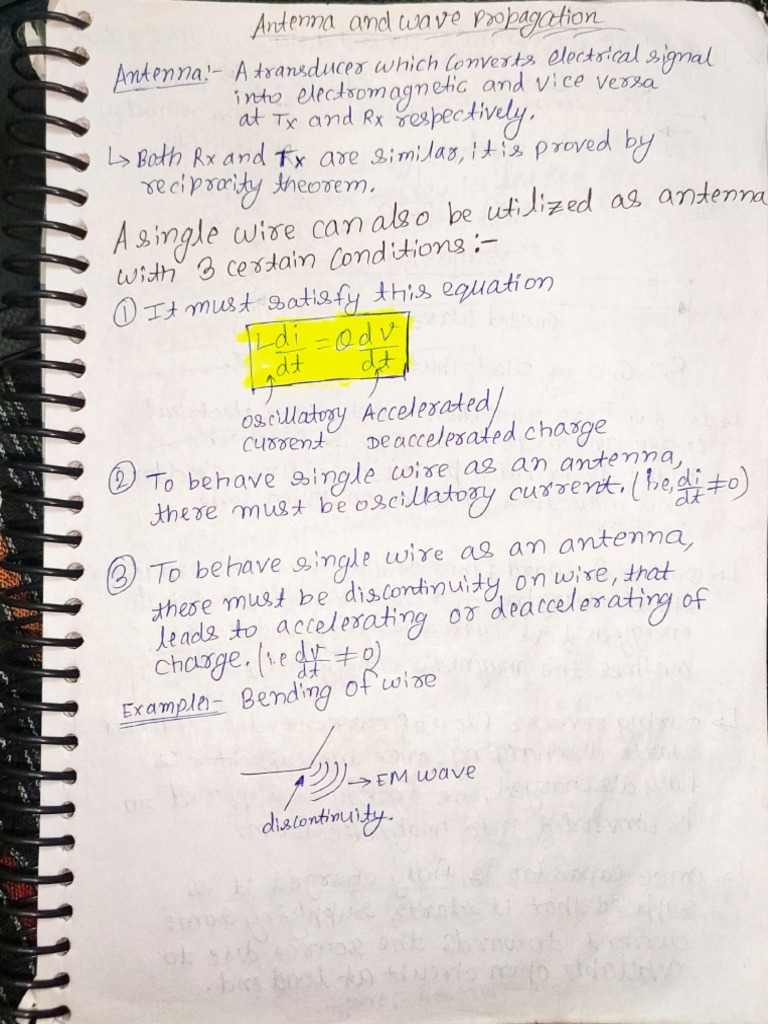 Antenna and wave propagation
Antenna:- A transducer which converts electrical signal
into electromagnetic and vice versa
at Tx and Rx respectively.
↳ Both Rx and Tx are similar, it is proved by
reciprocity theorem.
A single wire can also be utilized as antenna
with 3 certain conditions:-
① It must satisfy this equation
L di/dt = Q dv/dt
oscillatory current
Accelerated/ Deaccelerated charge
② To behave single wire as an antenna,
there must be oscillatory current. (i.e, di/dt ≠ 0)
③ To behave single wire as an antenna,
there must be discontinuity on wire, that
leads to accelerating or deaccelerating of
charge. (i.e dv/dt ≠ 0)
Example:- Bending of wire
→ EM wave
discontinuity.